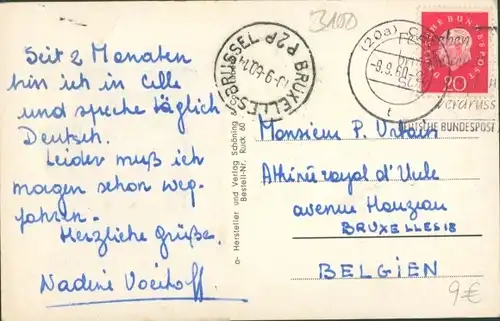 3100
Seit 2 Monaten
bin ich in Celle
und spreche täglich
Deutsch.
Leider muß ich
morgen schon weg-
fahren.
Herzliche Grüße.
Nadine
BRUXELLES-BRUSSEL
P2P
(20a)
-9.9.60-
t
DEUTSCHE BUNDESPOST
20
DEUTSCHE BUNDESPOST
Hersteller und Verlag Schöning &
Bestell-Nr. Ruck 60
Monsieur P.
Athénée royal d'Uccle
avenue Houzeau
BRUXELLES 18
BELGIEN
9€